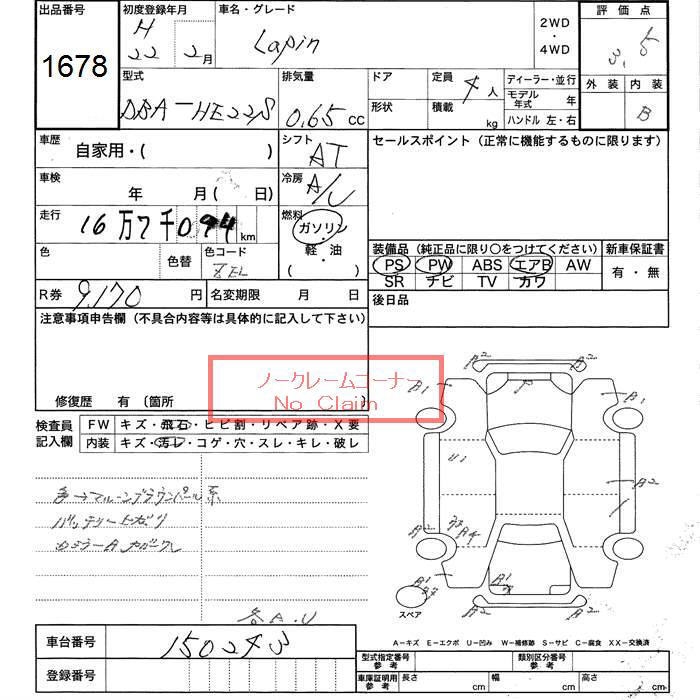 出品番号
1678
初度登録年月
H
22 2月
車名・グレード
Lapin
2WD
・
4WD
評価点
3.5
外装 内装
B
型式
DBA-HE22S
排気量
0.65 CC
ドア
形状
定員
4人
積載
kg
ディーラー・並行
モデル年式 年
ハンドル 左・右
車歴
自家用・( )
シフト
AT
セールスポイント(正常に機能するものに限ります)
車検
年 月( 日)
冷房
A/C
走行
16万7千094km
燃料
ガソリン
・
軽・油
・
( )
色
色替
色コード
ZEL
装備品(純正品に限り〇をつけてください)
新車保証書
PS PW ABS エアB AW
SR ナビ TV カワ
有・無
R券
9,170円
名変期限 月 日
後日品
注意事項申告欄(不具合内容等は具体的に記入して下さい)
ノークレームコーナー
No Claim
修復歴 有(箇所
検査員
記入欄
FW キズ・飛石・ヒビ割・リペア跡・X要
内装 キズ・汚レ・コゲ・穴・スレ・キレ・破レ
色→マルーンブラウンパール系
バッテリー上ガリ
スペア
A-キズ E-エクボ U-凹み W-補修跡 S-サビ C-腐食 XX-交換済
車台番号
150243
登録番号
型式指定番号
参考
類別区分番号
参考
車庫証明用
参考
長さ cm
幅 cm
高さ cm